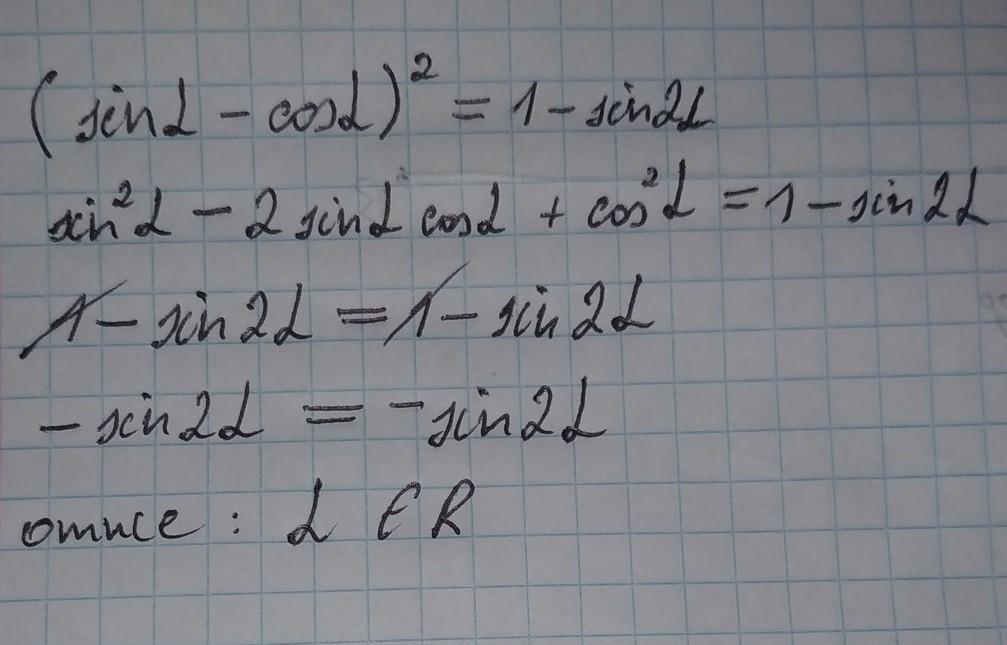 (sinα - cosα)² = 1 - sin2α
sin²α - 2 sinα cosα + cos²α = 1 - sin2α
1 - sin2α = 1 - sin2α
- sin2α = - sin2α
отисе : α ∈ R